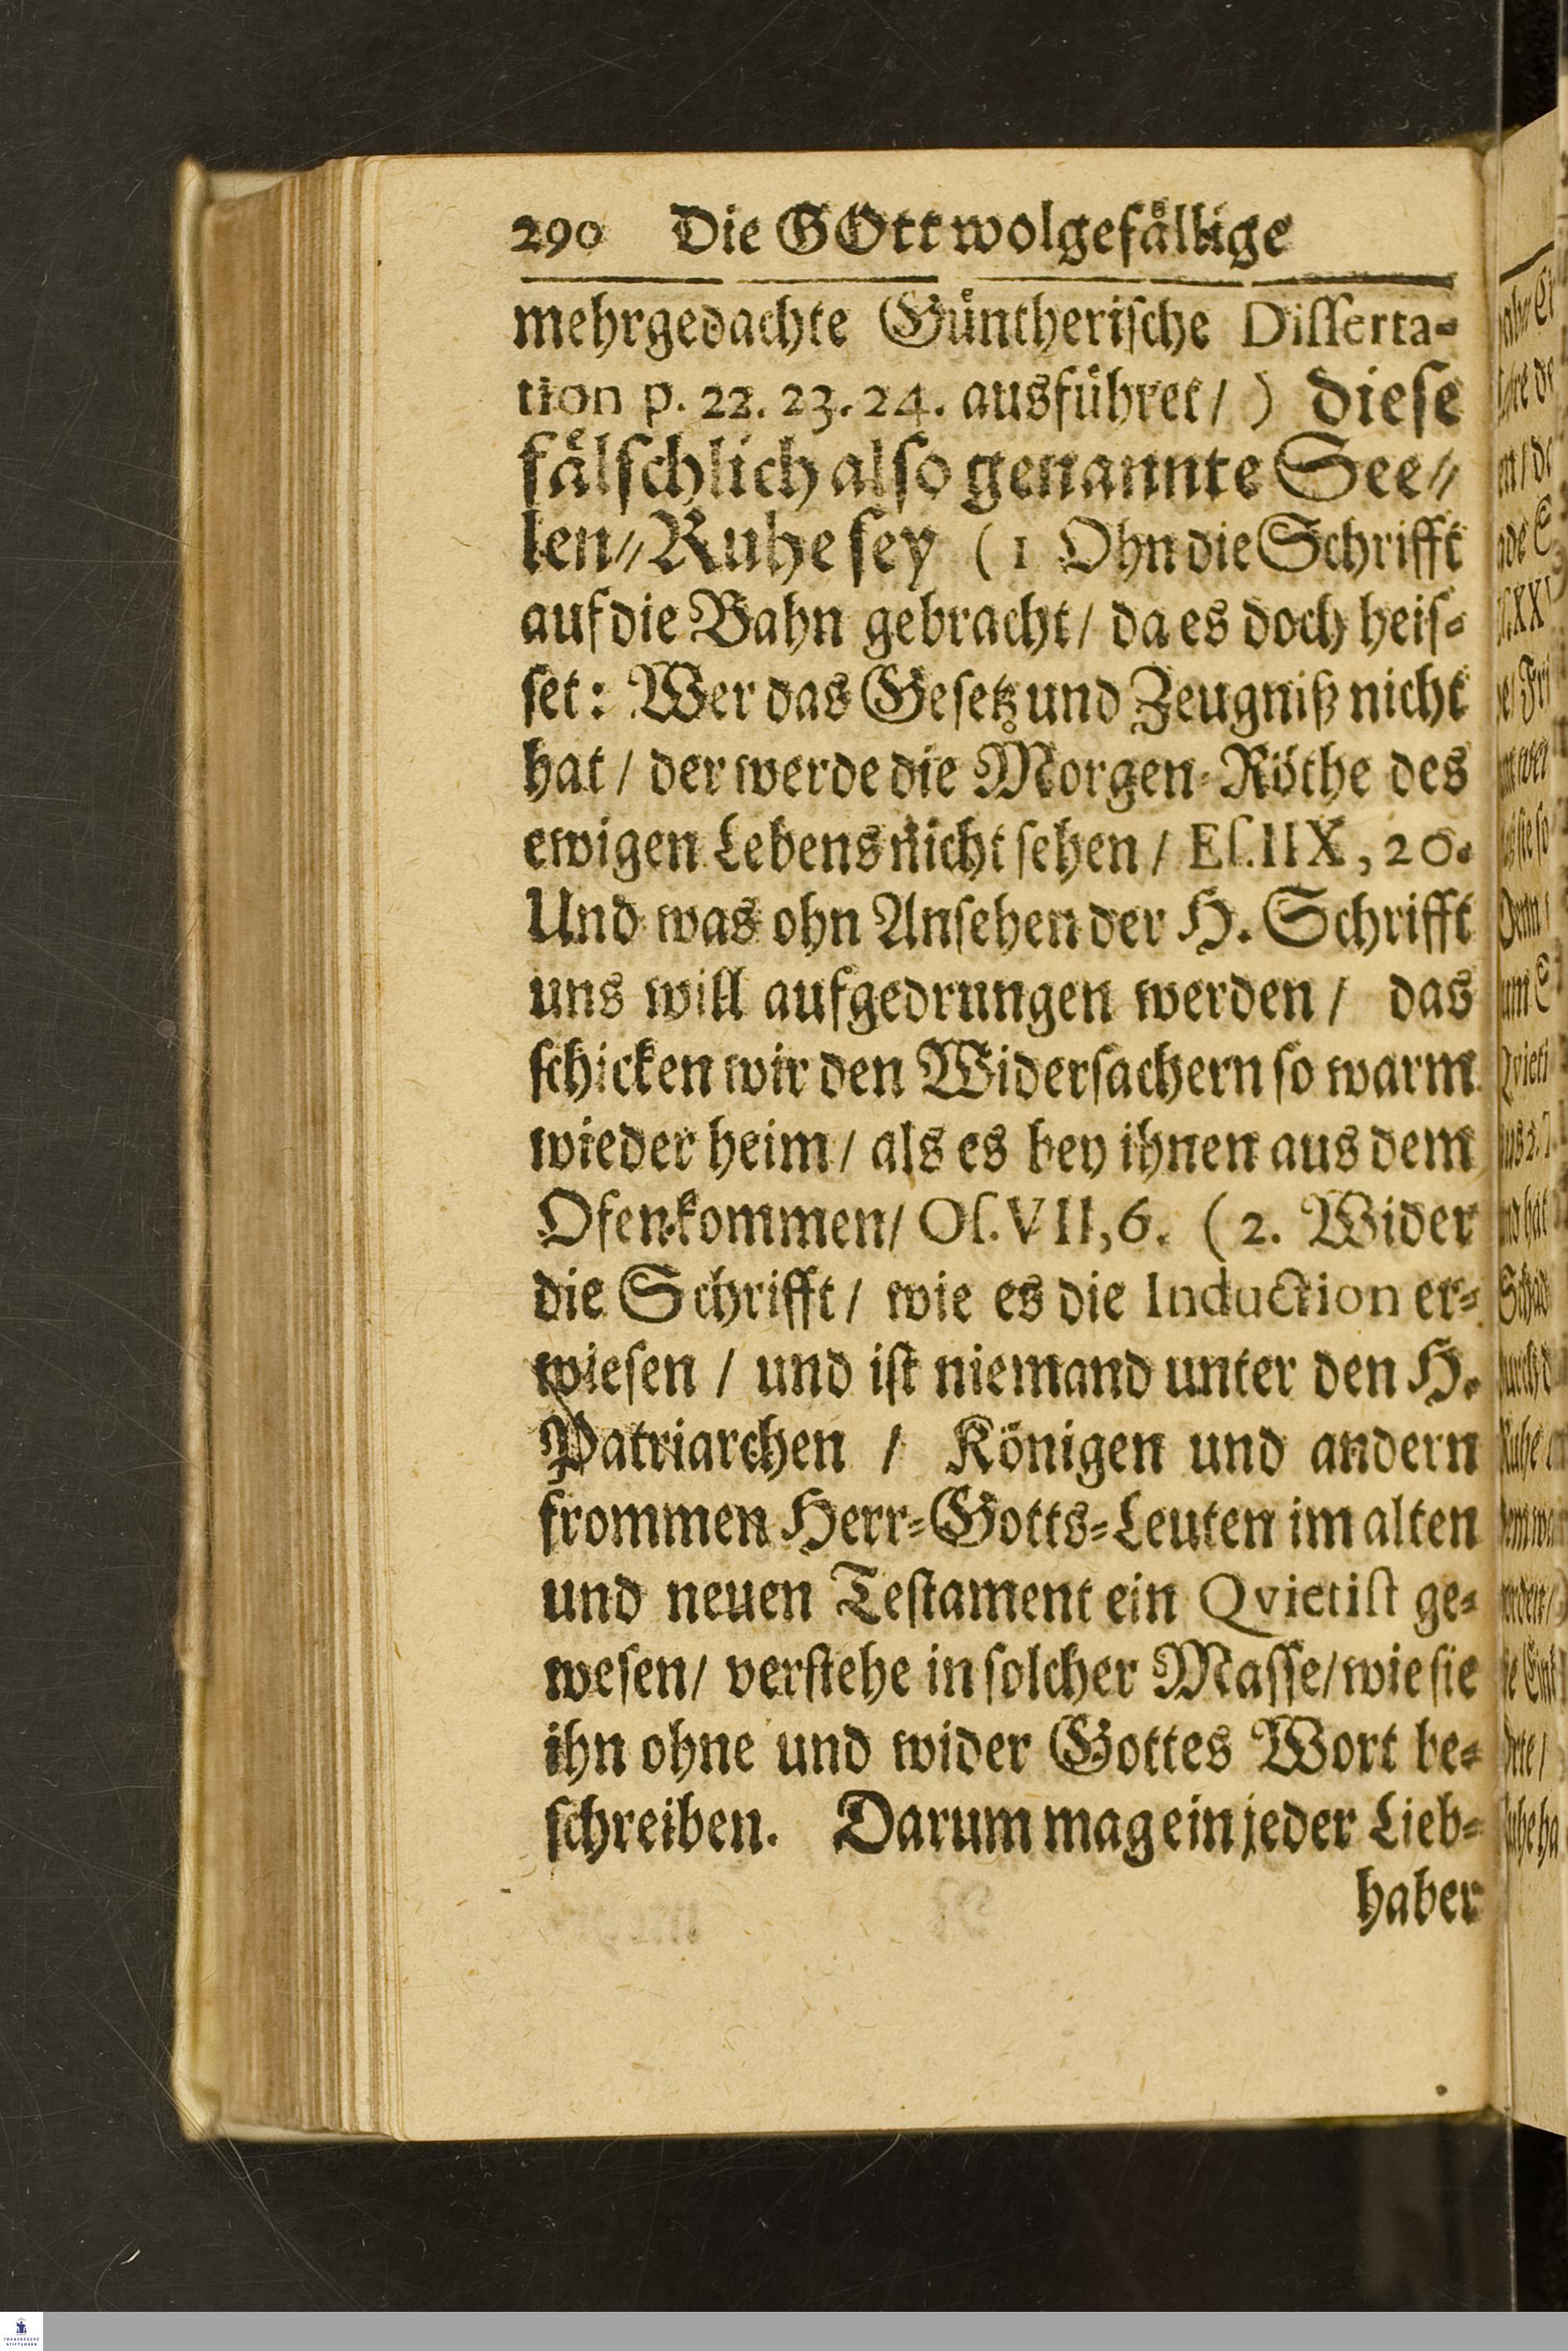 290 Die GOtt wolgefällige
mehrgedachte Güntherische Disserta-
tion p. 22. 23. 24. ausführet/) diese
fälschlich also genannte See-
len-Ruhe sey (1 Ohn die Schrifft
auf die Bahn gebracht/ da es doch heis-
set: Wer das Gesetz und Zeugniß nicht
hat/ der werde die Morgen-Röthe des
ewigen Lebens nicht sehen/ Es. IIX, 20.
Und was ohn Ansehen der H. Schrifft
uns will aufgedrungen werden/ das
schicken wir den Widersachern so warm
wieder heim/ als es bey ihnen aus dem
Ofen kommen/ Os. VII, 6. (2. Wider
die Schrifft/ wie es die Induction er-
wiesen/ und ist niemand unter den H.
Patriarchen/ Königen und andern
frommen Herr-Gotts-Leuten im alten
und neuen Testament ein Qvietist ge-
wesen/ verstehe in solcher Masse/ wie sie
ihn ohne und wider Gottes Wort be-
schreiben. Darum mag ein jeder Lieb-
haber
FRANCKESCHE
STIFTUNGEN